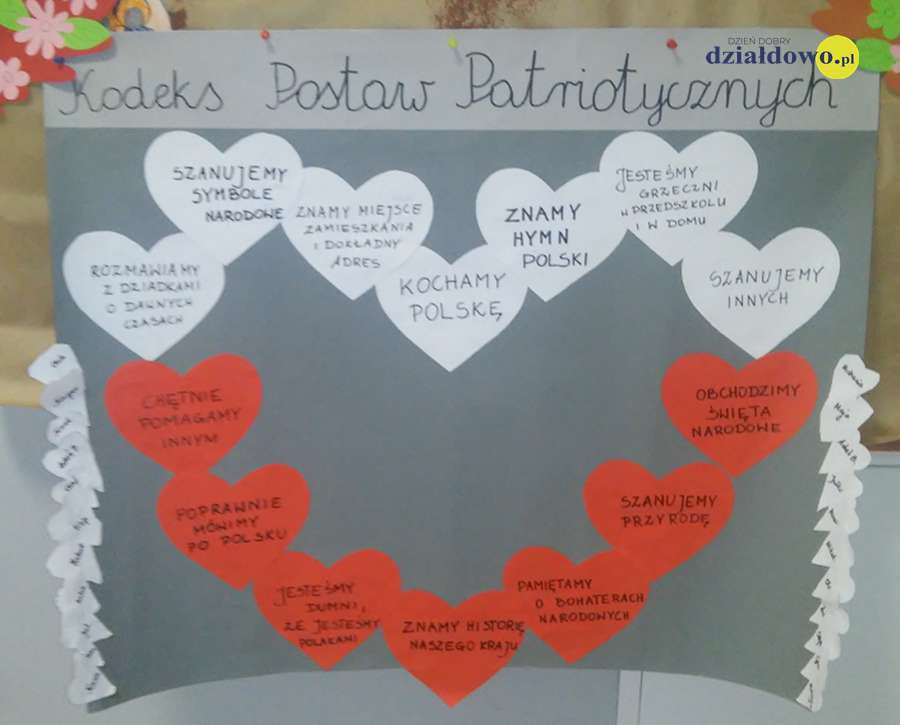 DZIEŃ DOBRY
działdowo.pl
Kodeks Postaw Patriotycznych
SZANUJEMY
SYMBOLE
NARODOWE
ZNAMY MIEJSCE
ZAMIESZKANIA
I DOKŁADNY
ADRES
ZNAMY
HYMN
POLSKI
JESTEŚMY
GRZECZNI
W PRZEDSZKOLU
I W DOMU
ROZMAWIAMY
Z DZIADKAMI
O DAWNYCH
CZASACH
KOCHAMY
POLSKĘ
SZANUJEMY
INNYCH
CHĘTNIE
POMAGAMY
INNYM
OBCHODZIMY
ŚWIĘTA
NARODOWE
POPRAWNIE
MÓWIMY
PO POLSKU
SZANUJEMY
PRZYRODĘ
JESTEŚMY
DUMNI,
ŻE JESTEŚMY
POLAKAMI
ZNAMY HISTORIĘ
NASZEGO KRAJU
PAMIĘTAMY
O BOHATERACH
NARODOWYCH